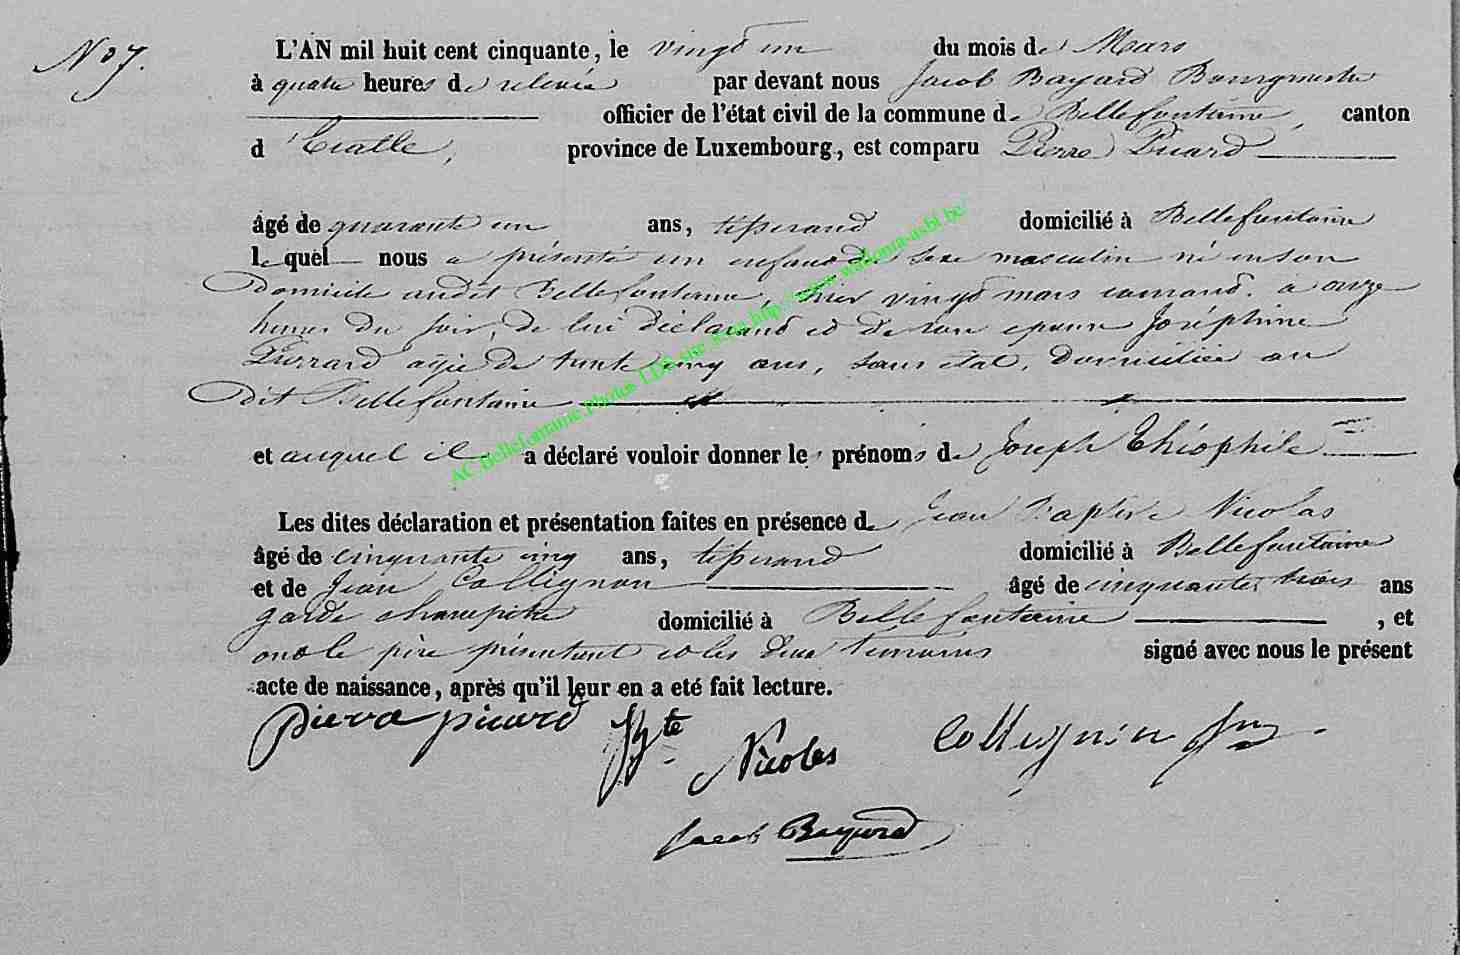 No 7.
L'AN mil huit cent cinquante, le vingt un du mois de Mars
à quatre heures de relevée par devant nous Jacob Bayard Bourgmestre
officier de l'état civil de la commune de Bellefontaine, canton
d'Etalle, province de Luxembourg, est comparu Pierre Picard
âgé de quarante un ans, tisserand domicilié à Bellefontaine
lequel nous a présenté un enfant du sexe masculin né en son
Domicile audit Bellefontaine, hier vingt mars courant à onze
heures du soir, de lui déclarant et de son épouse Joséphine
agée de trente cinq ans, sans état, domiciliée au
Dit Bellefontaine
et auquel il a déclaré vouloir donner les prénoms de Joseph Théophile
Les dites déclaration et présentation faites en présence de Jean Baptiste Nicolas
âgé de cinquante cinq ans, tisserand domicilié à Bellefontaine
et de Jean Collignon âgé de cinquante trois ans
garde champêtre domicilié à Bellefontaine, et
ont le père présentant et les deux témoins signé avec nous le présent
acte de naissance, après qu'il leur en a eté fait lecture.
Pierre picard Bte Nicolas Collignon
Jacob Bayard
AC Bellefontaine Photos LDS sur site http://www.wallonia-asbl.be/